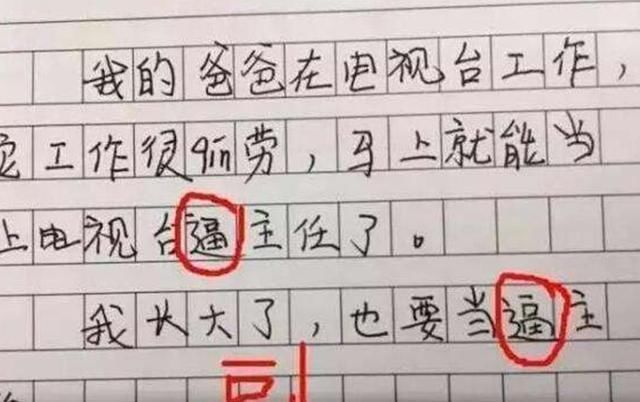 我的爸爸在电视台工作，
工作很qin劳，马上就能当
上电视台逼主任了。
我长大了，也要当逼主